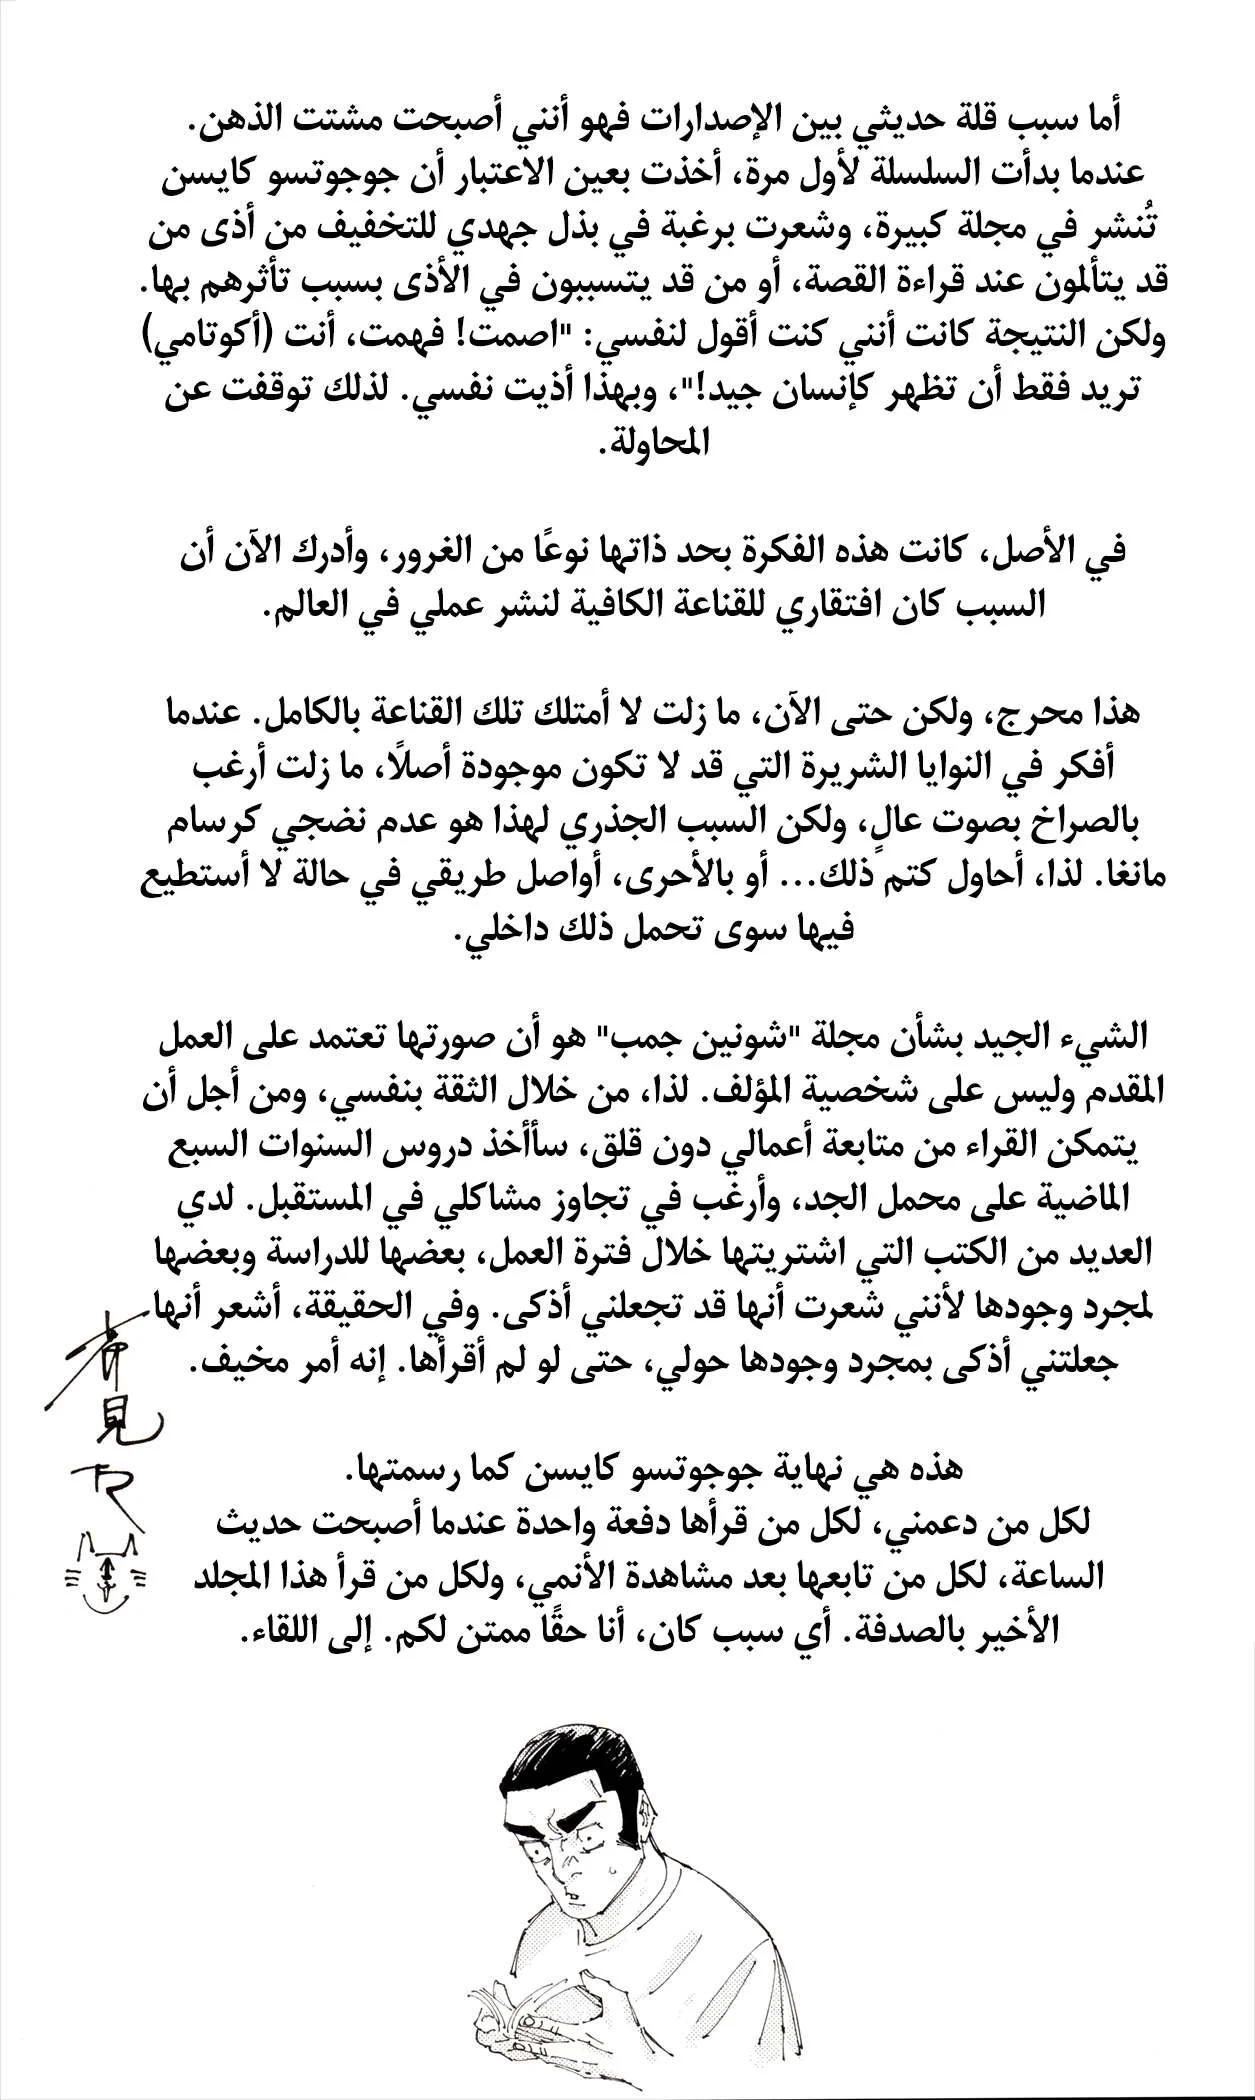 أما سبب قلة حديثي بين الإصدارات فهو أنني أصبحت مشتت الذهن.
عندما بدأت السلسلة لأول مرة، أخذت بعين الاعتبار أن جوجوتسو كايسن
تُنشر في مجلة كبيرة، وشعرت برغبة في بذل جهدي للتخفيف من أذى من
قد يتألمون عند قراءة القصة، أو من قد يتسببون في الأذى بسبب تأثرهم بها.
ولكن النتيجة كانت أنني كنت أقول لنفسي: "اصمت! فهمت، أنت (أكوتامي)
تريد فقط أن تظهر كإنسان جيد!"، وبهذا أذيت نفسي. لذلك توقفت عن
المحاولة.
في الأصل، كانت هذه الفكرة بحد ذاتها نوعًا من الغرور، وأدرك الآن أن
السبب كان افتقاري للقناعة الكافية لنشر عملي في العالم.
هذا محرج، ولكن حتى الآن، ما زلت لا أمتلك تلك القناعة بالكامل. عندما
أفكر في النوايا الشريرة التي قد لا تكون موجودة أصلًا، ما زلت أرغب
بالصراخ بصوت عالٍ، ولكن السبب الجذري لهذا هو عدم نضجي كرسام
مانغا. لذا، أحاول كتم ذلك... أو بالأحرى، أواصل طريقي في حالة لا أستطيع
فيها سوى تحمل ذلك داخلي.
الشيء الجيد بشأن مجلة "شونين جمب" هو أن صورتها تعتمد على العمل
المقدم وليس على شخصية المؤلف. لذا، من خلال الثقة بنفسي، ومن أجل أن
يتمكن القراء من متابعة أعمالي دون قلق، سأأخذ دروس السنوات السبع
الماضية على محمل الجد، وأرغب في تجاوز مشاكلي في المستقبل. لدي
العديد من الكتب التي اشتريتها خلال فترة العمل، بعضها للدراسة وبعضها
لمجرد وجودها لأنني شعرت أنها قد تجعلني أذكى. وفي الحقيقة، أشعر أنها
جعلتني أذكى بمجرد وجودها حولي، حتى لو لم أقرأها. إنه أمر مخيف.
هذه هي نهاية جوجوتسو كايسن كما رسمتها.
لكل من دعمني، لكل من قرأها دفعة واحدة عندما أصبحت حديث
الساعة، لكل من تابعها بعد مشاهدة الأنمي، ولكل من قرأ هذا المجلد
الأخير بالصدفة. أي سبب كان، أنا حقًا ممتن لكم. إلى اللقاء.